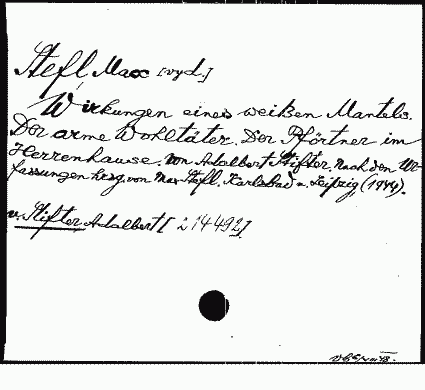 Stefl Max [vyd.]
Wirkungen eines weißen Mantels.
Der arme Wohltäter. Der Pförtner im
Herrenhause. Von Adalbert Stifter. Nach den Ur-
fassungen hrsg. von Max Stefl. Karlsbad u. Leipzig (1944).
v. Stifter Adalbert [214492]